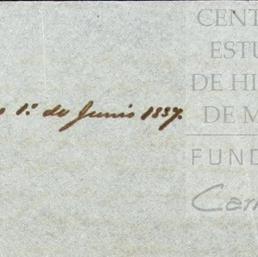 CENT
ESTU
DE HI
DE M
1º de Junio 1837.
FUND
Car